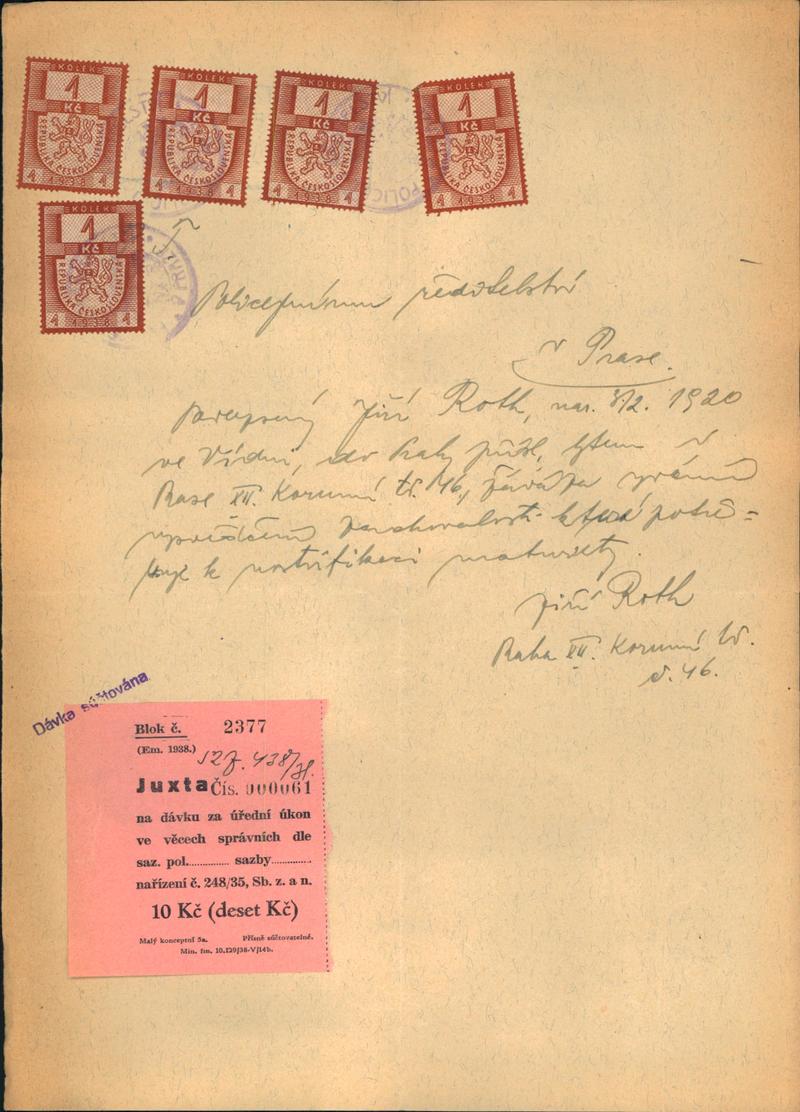 KOLEK
1
Kč
REPUBLIKA ČESKOSLOVENSKÁ
1 1938 1
KOLEK
1
Kč
REPUBLIKA ČESKOSLOVENSKÁ
1 1938 1
KOLEK
1
Kč
REPUBLIKA ČESKOSLOVENSKÁ
1 1938 1
KOLEK
1
Kč
REPUBLIKA ČESKOSLOVENSKÁ
1 1938 1
1
Kč
REPUBLIKA ČESKOSLOVENSKÁ
1 1938 1
ředitelství
v Praze.
Jiří Roth, nar. 1920
ve Vídni, do Prahy přísl., bytem v
Praze XII. Korunní tř. 46, žádá za
zachovalosti potře-
buje k nostrifikaci maturity.
Jiří Roth
Praha XII. Korunní tř.
č. 46.
Dávka súčtována
Blok č. 2377
(Em. 1938.)
438/38.
Juxta Čís. 000061
na dávku za úřední úkon
ve věcech správních dle
saz. pol............. sazby.............
nařízení č. 248/35, Sb. z. a n.
10 Kč (deset Kč)
Malý konceptní 5a. Přísně súčtovatelné.
Min. fin. 10.129/38-V/14b.